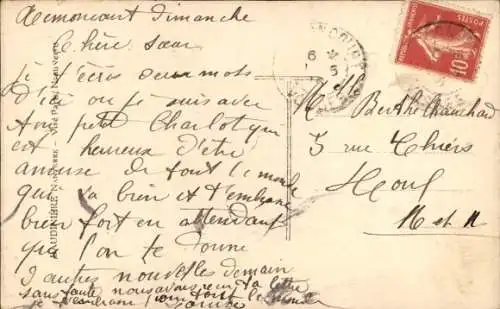 Remoncourt Dimanche
Chère Sœur
je t'écris deux mots
d'ici ou je suis avec
ton petit Charlot qui
est heureux d'être
amuse de tout le monde
qui va bien et t'embrasse
bien fort en attendant
que l'on te donne
d'autres nouvelles demain
sans faute nous avons reçu ta lettre
je t'embrasse pour tout le monde
Mlle Berthe
5 rue Thiers
M et M
POSTES
10